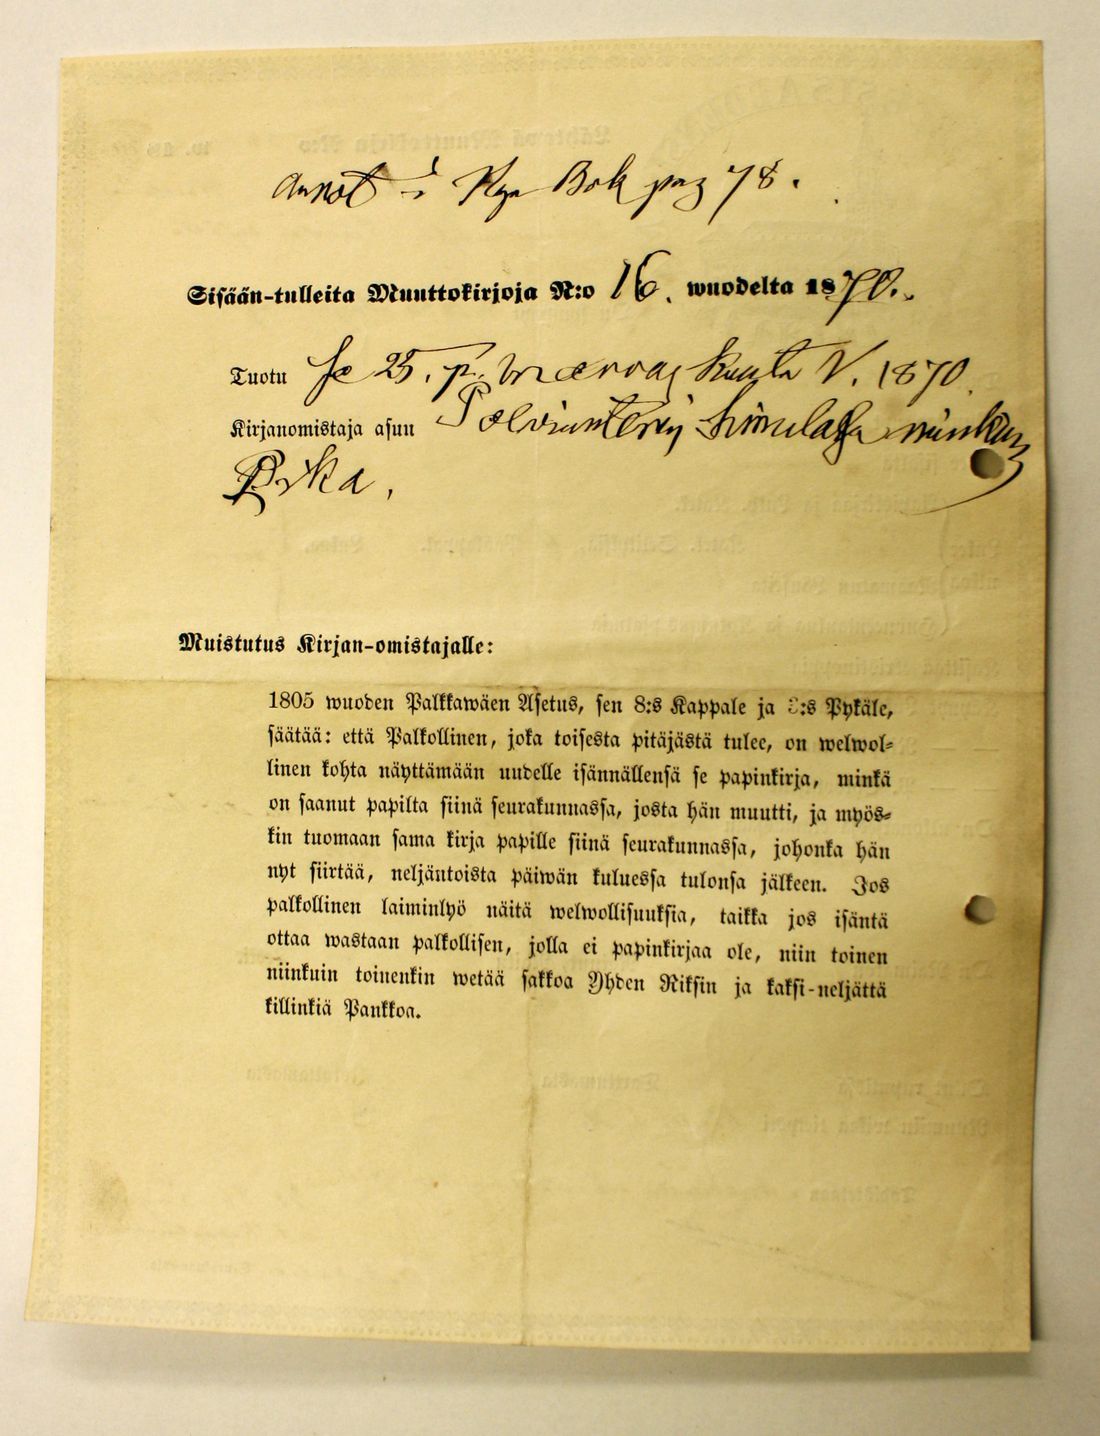 Annot i Kya Bok pag 78.
Sisään-tulleita Muuttokirjoja N:o 16. wuodelta 1870.
Tuotu se 25. p. marras kuuta V. 1870
Kirjanomistaja asuu
Muistutus Kirjan-omistajalle:
1805 wuoden Palkkawäen Asetus, sen 8:s Kappale ja :s Pykäle,
säätää: että Palkollinen, joka toisesta pitäjästä tulee, on welwol-
linen kohta näyttämään uudelle isännällensä se papinkirja, minkä
on saanut papilta siinä seurakunnassa, josta hän muutti, ja myös-
kin tuomaan sama kirja papille siinä seurakunnassa, johonka hän
nyt siirtää, neljäntoista päiwän kuluessa tulonsa jälkeen. Jos
palkollinen laiminlyö näitä welwollisuuksia, taikka jos isäntä
ottaa wastaan palkollisen, jolla ei papinkirjaa ole, niin toinen
niinkuin toinenkin wetää sakkoa Yhden Riksin ja kaksi-neljättä
killinkiä Pankkoa.